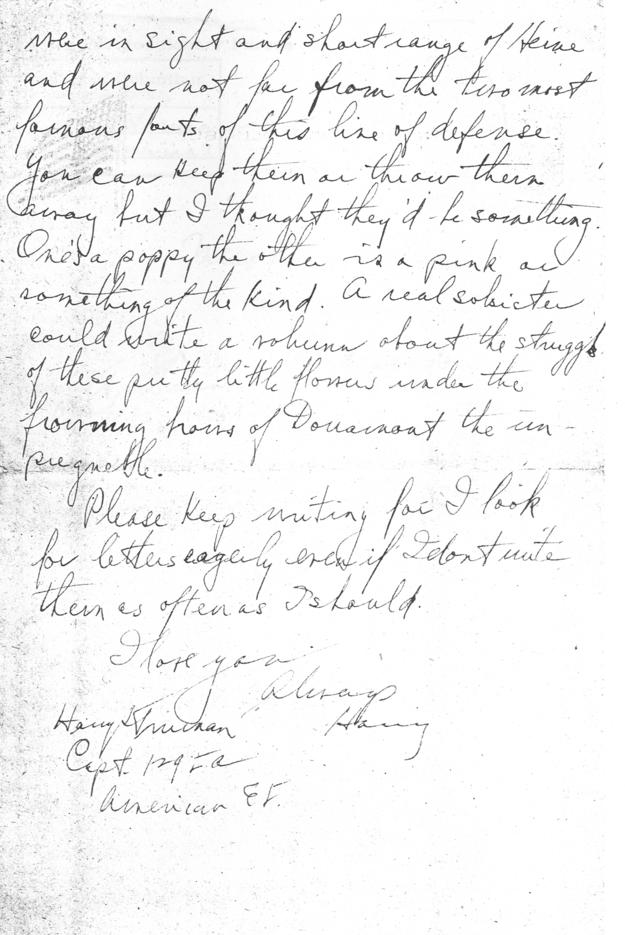 were in sight and short range of Heine
and were not far from the two most
famous forts of this line of defense.
You can keep them or throw them
away but I thought they'd be something.
One's a poppy the other is a pink or
something of the kind. A real sobsister
could write a volume about the struggle
of these pretty little flowers under the
frowning brows of Douaumont the un-
pregnable.
Please keep writing for I look
for letters eagerly even if I dont write
them as often as I should.
I love you
Always
Harry
Harry S Truman
Capt. 129 F A
American E F.